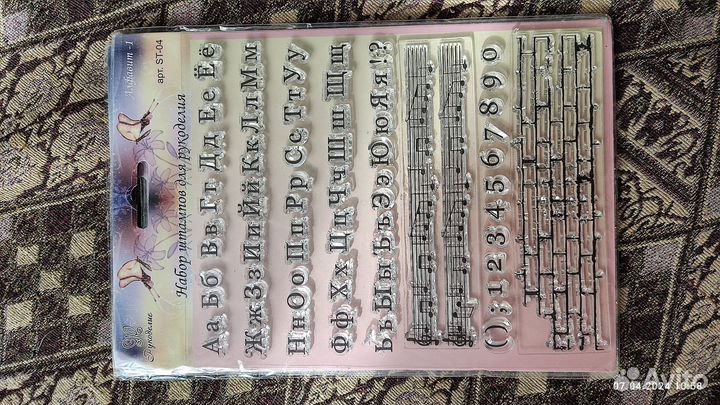 Рукоделие
Алфавит -1
арт. ST-04
Набор штампов для рукоделия
Аа Бб Вв Гг Дд Ее Ёё
Жж Зз Ии Йй Кк Лл Мм
Нн Оо Пп Рр Сс Тт Уу
Фф Хх Цц Чч Шш Щщ
Ъъ Ыы Ьь Ээ Юю Яя !?
() : ; 1 2 3 4 5 6 7 8 9 0
Avito
07.04.2024 10:58